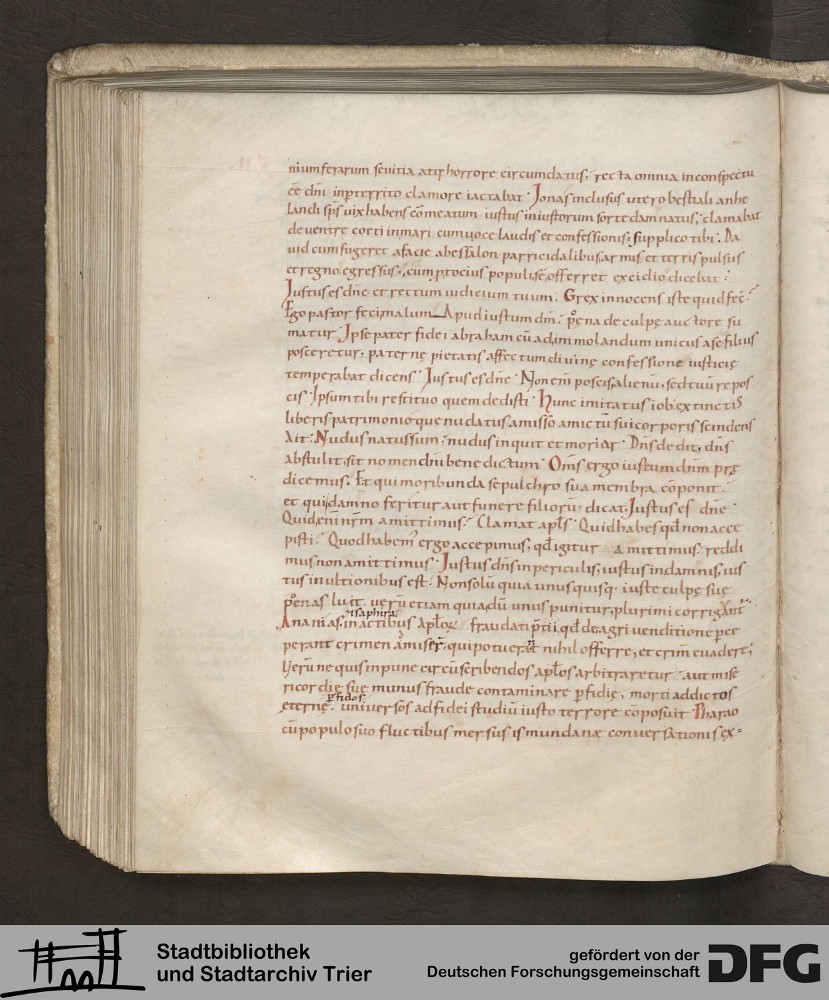 nium ferarum sevitia atq; horrore circumdatus; recta omnia in conspectu
ēē dn̄i inp̄territo clamore iactabat. Jonas inclusus utero bestiali anhe
landi sp̄s vix habens cōmeatum. iustus iniustorum sorte damnatus; clamabat
de ventre coeti in mari cum voce laudis et confessionis. supplico tibi. Da
uid cum fugeret a facie abessalon parricidalibus armis et terris pulsus
et regno egressus. cum p totius populi se offerret excidio dicebat:
Justus es dn̄e. et rectum iudicium tuum. Grex innocens iste quid fec̄?
Ego pastor feci malum. Apud iustum dm̄. poena de culpę auctore su
matur. Ipse pater fidei abraham cū ad immolandum unicus a se filius
posceretur. paternę pietatis affectum divinę confessione iusticię
temperabat dicens. Justus es dn̄e. Non eni poscis alienū. sed tuū repos
cis. Ipsum tibi restituo quem dedisti. Hunc imitatus iob. extinctis
liberis patrimonioque nudatus amisso amictū sui corporis scindens
Ait. Nudus natus sum. nudus inquit et moriar. Dn̄s dedit, dn̄s
abstulit. sit nomen dn̄i benedictum. Om̄s ergo iustum dn̄m prę
dicemus. Et qui moribunda sepulchro sua membra cōponit.
et qui damno feritur aut funere filiorū. dicat. Justus es dn̄e
Quid enim nr̄m amittimus? Clamat apl̄s. Quid habes qd̄ non acce
pisti? Quod habem' ergo accepimus; qd̄ igitur amittimus. reddi
mus non amittimus. Justus dn̄s in periculis, iustus in damnis, ius
tus in ultionibus est. Non solū quia unusquisq; iuste culpę suę
poenas luit. verū etiam quia dū unus punitur, plurimi corrigant'
& saphira
Ananias in actibus apl̄ox fraudati p̄tii qd̄ de agri venditione pce
perant crimen amiser̄. qui potuerat nihil offerre, et crim̄ evadere;
Verū ne quis inpune circūscribendos apl̄os arbitraretur. aut mise
ricordię suę munus fraude contaminare p̄fidię, morti addictos
p̄fidos
eternę. universos ad fidei studiū iusto terrore cōposuit. Pharao
cū populo suo fluctibus mersus is mundanæ conversationis ex=
Stadtbibliothek
und Stadtarchiv Trier
gefördert von der
Deutschen Forschungsgemeinschaft
DFG